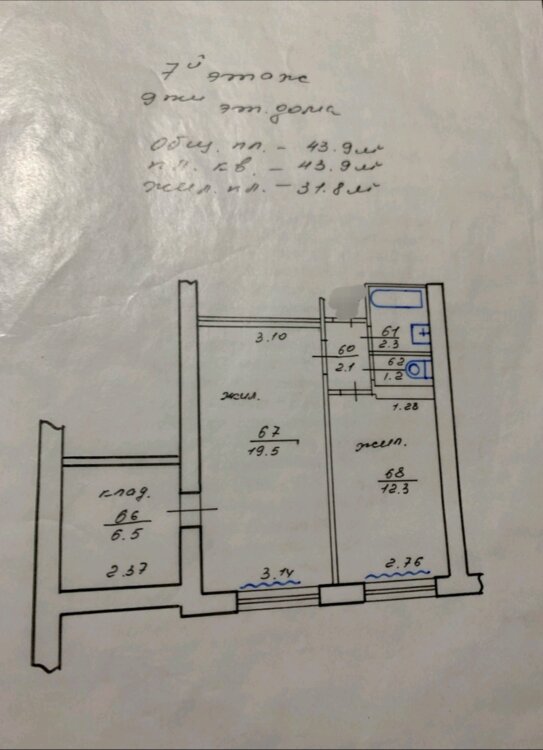 7й этаж
эт. дома
Общ. пл. - 43.9 м²
пл. кв. - 43.9 м²
жил. пл. - 31.8 м²
3.10
60
2.1
61
2.3
62
1.2
1.28
жил.
67
19.5
жил.
68
12.3
клад.
66
6.5
2.37
3.14
2.76